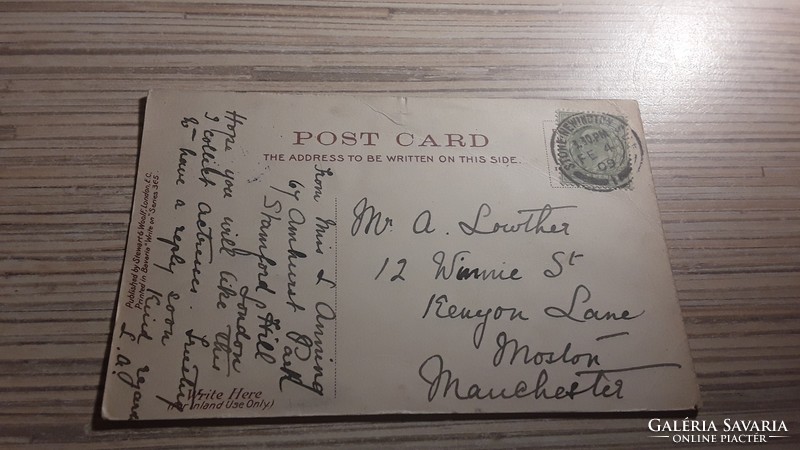 POST CARD
THE ADDRESS TO BE WRITTEN ON THIS SIDE.
STOKE-NEWINGTON
1.10 PM
FE 4
09
Mr A. Lowther
12 Winnie St
Kenyon Lane
Moston
Manchester
from Miss L Anning
67 Amhurst Park
Stamford Hill
London
Hope you will like this
I collect actresses. Trusting
to have a reply soon
Kind regards
L. A.
Write Here
(For Inland Use Only)
Published by Stewart & Woolf, London, E.C.
Printed in Bavaria "Write on" Series 365
GALÉRIA SAVARIA
ONLINE PIACTÉR